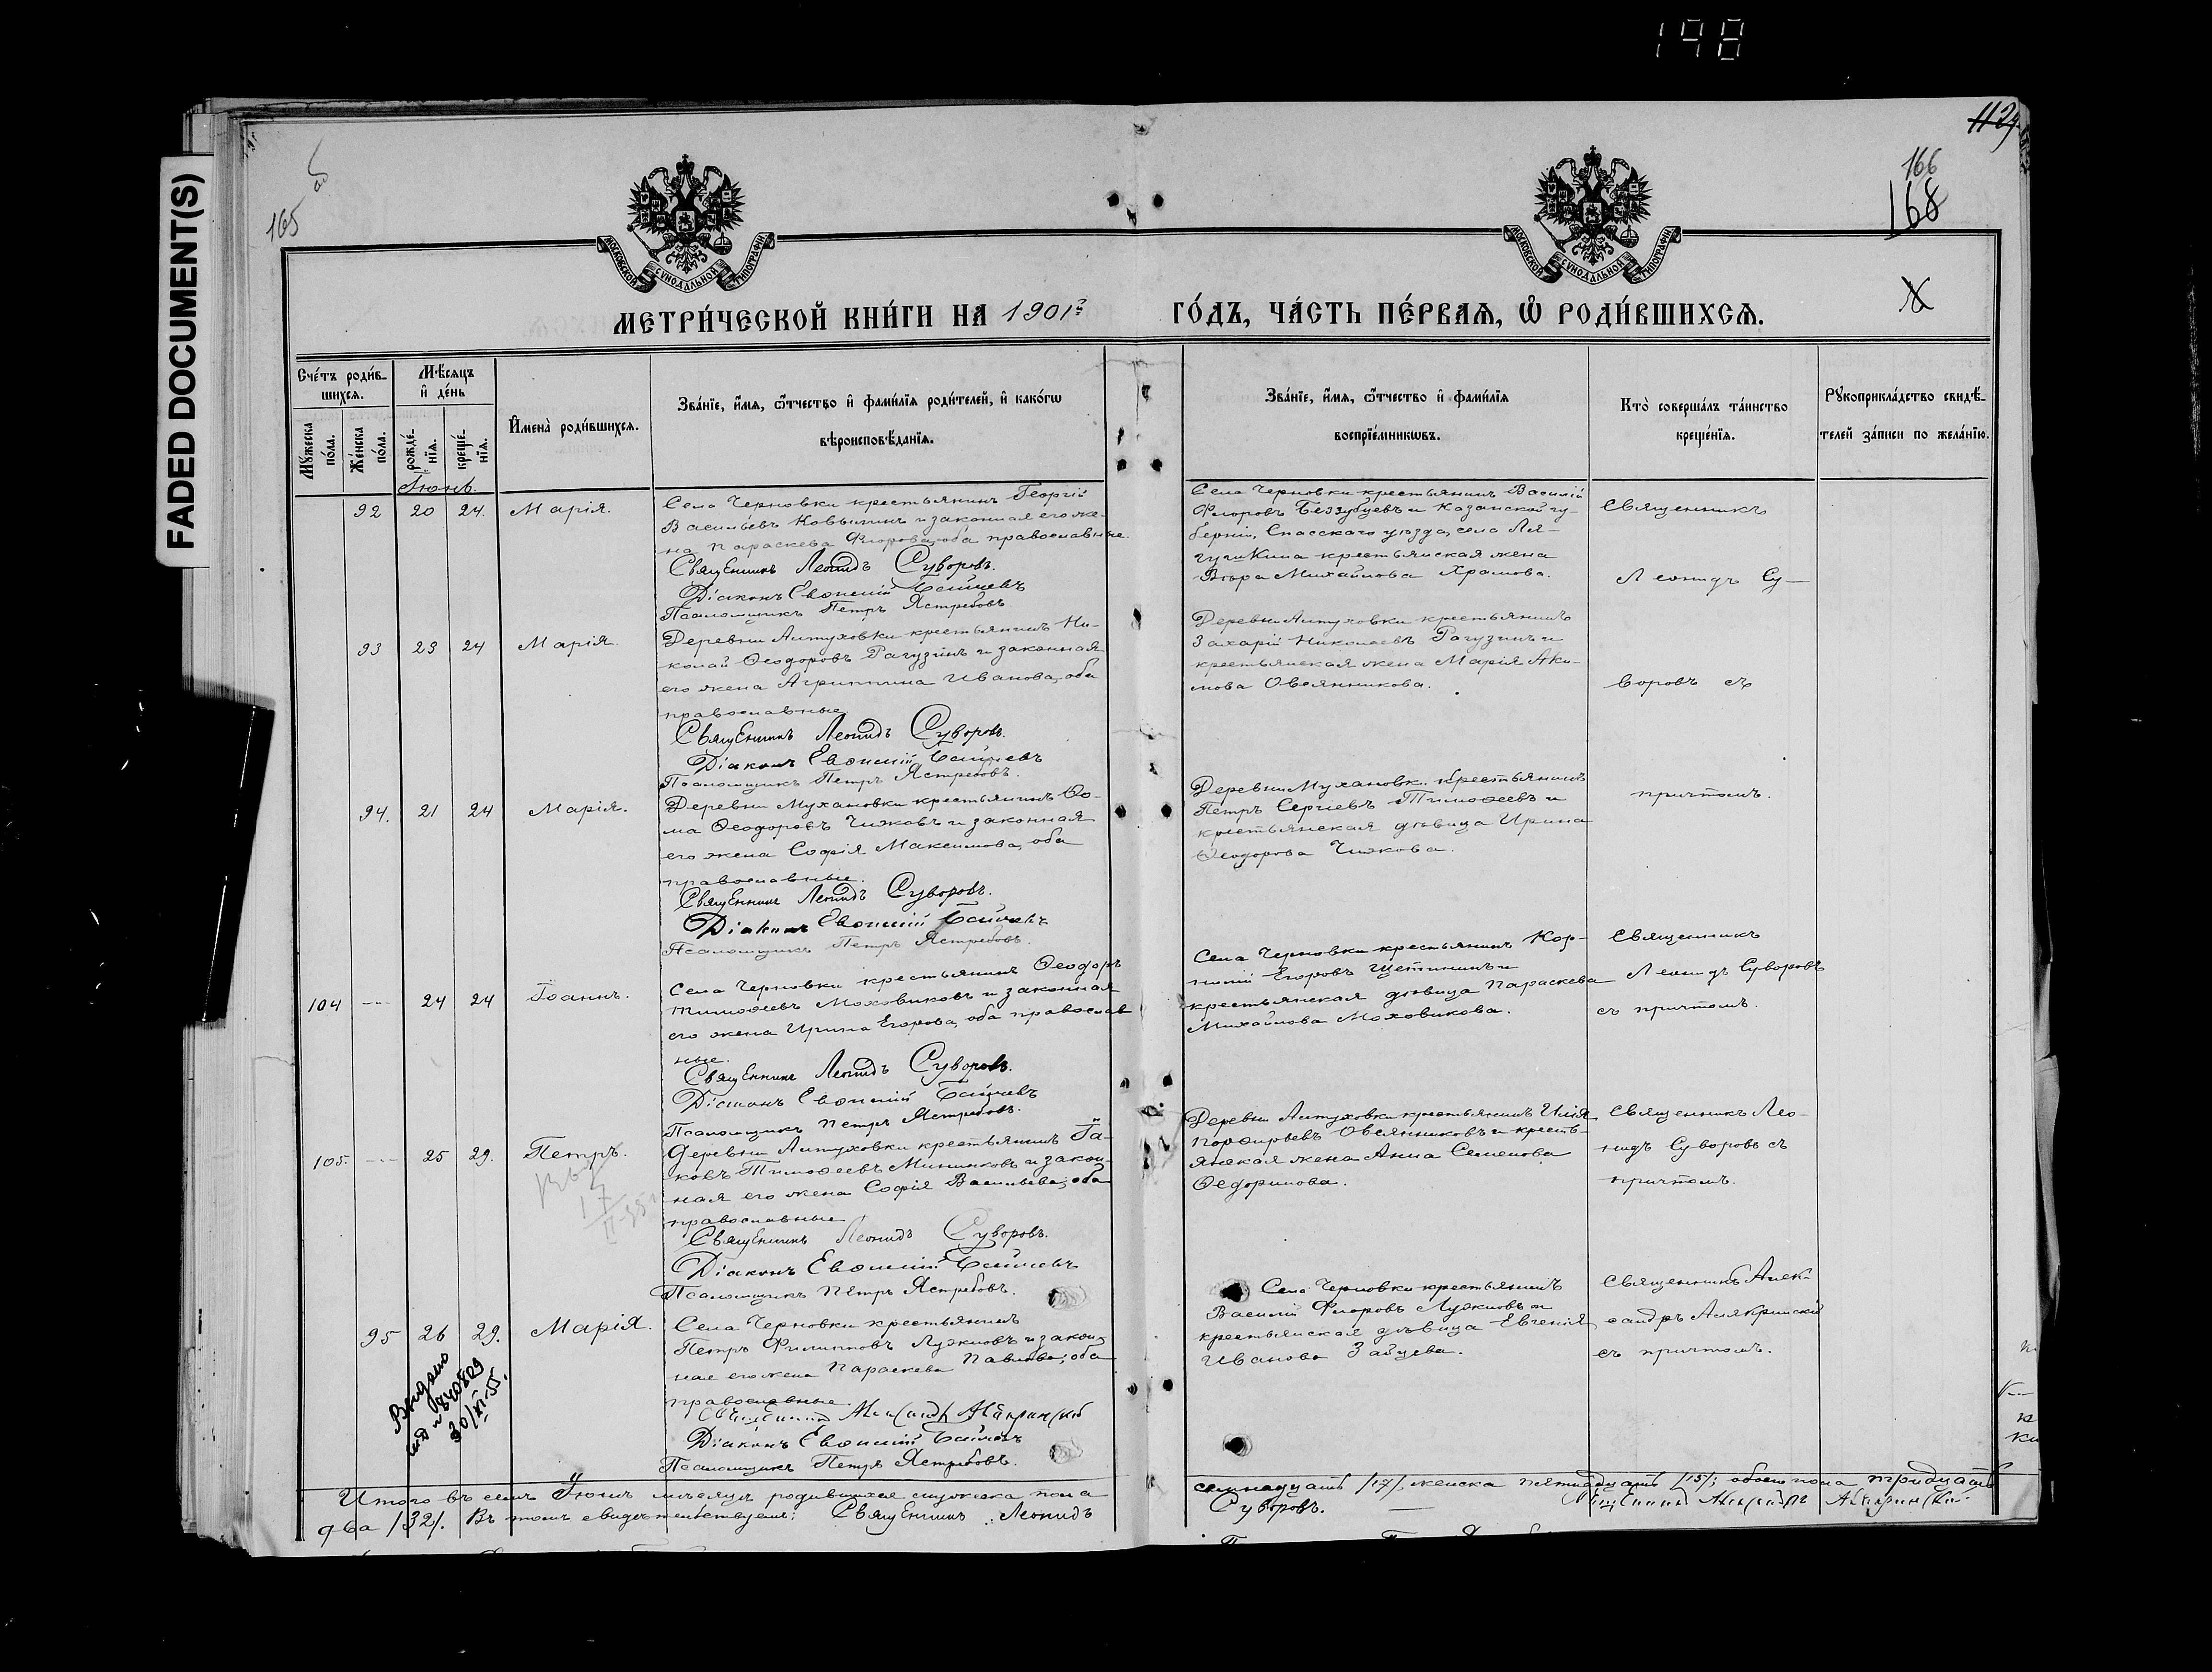 198
FADED DOCUMENT(S)
165
об
1129
166
168
МОСКОВСКОЙ СУНОДАЛЬНОЙ ТИПОГРАФІИ
МОСКОВСКОЙ СУНОДАЛЬНОЙ ТИПОГРАФІИ
МЕТРИ́ЧЕСКОЙ КНИ́ГИ НА 1901 ГО́ДЪ, ЧА́СТЬ ПЕ́РВАѦ, Ѡ РОДИ́ВШИХСѦ.
Сче́тъ роди́в-
шихсѧ.
Мѣ́сѧцъ
и҆ де́нь
Мꙋ́жеска
по́ла.
Же́нска
по́ла.
рожде́-
нїѧ.
креще́-
нїѧ.
И҆мена̀ роди́вшихсѧ.
Зва́нїе, и҆́мѧ, ѻ҆́тчество и҆ фами́лїѧ роди́телей, и҆ како́гѡ
вѣроисповѣ́данїѧ.
Зва́нїе, и҆́мѧ, ѻ҆́тчество и҆ фами́лїѧ
воспрїе́мникѡвъ.
Кто̀ соверша́лъ та́инство
креще́нїѧ.
Рꙋкоприкла́дство свидѣ́-
телей за́писи по жела́нїю.
Іюнь.
92 20 24. Марія.
Села Черновки крестьянинъ Георгій
Васильевъ и законная его же-
на Параскева Флорова, оба православные.
Священникъ Леонидъ Суворовъ.
Діаконъ Евѳимій
Псаломщикъ Петръ Ястребовъ
Села Черновки крестьянинъ Василій
Флоровъ Беззубцевъ и Казанской гу-
берніи, Спасскаго уѣзда, села Ля-
гушкина крестьянская жена
Вѣра Михайлова Храмова.
Священникъ
Леонидъ Су-
93 23 24 Марія.
Деревни Антуховки крестьянинъ Ни-
колай Ѳеодоровъ Рагузинъ и законная
его жена Агриппина Иванова, оба
православные
Священникъ Леонидъ Суворовъ.
Діаконъ Евѳимій
Псаломщикъ Петръ Ястребовъ.
Деревни Антуховки крестьянинъ
Захарій Николаевъ Рагузинъ и
крестьянская жена Марія Аки-
мова Овсянникова.
воровъ съ
94. 21 24 Марія.
Деревни Мухановки крестьянинъ Ѳо-
ма Ѳеодоровъ Чижовъ и законная
его жена Софія Максимова, оба
православные.
Священникъ Леонидъ Суворовъ.
Діаконъ Евѳимій
Псаломщикъ Петръ Ястребовъ.
Деревни Мухановк. крестьянинъ
Петръ Сергіевъ Тимоѳеевъ и
крестьянская дѣвица Ирина
Ѳеодорова Чижова.
причтомъ.
104 --- 24 24 Іоаннъ.
Села Черновки крестьянинъ Ѳеодоръ
Тимоѳеевъ Моховиковъ и законная
его жена Ирина Егорова, оба православ
ные.
Священникъ Леонидъ Суворовъ.
Діаконъ Евѳимій
Псаломщикъ Петръ Ястребовъ.
Села Черновки крестьянинъ Кор-
нилій Егоровъ Щетининъ и
крестьянская дѣвица Параскева
Михайлова Моховикова.
Священникъ
Леонидъ Суворовъ
съ причтомъ.
105. --- 25 29. Петръ.
17
Деревни Антуховки крестьянинъ Іа-
ковъ Тимоѳеевъ Мининковъ и закон-
ная его жена Софія Васильева, оба
православные
Священникъ Леонидъ Суворовъ.
Діаконъ Евѳимій
Псаломщикъ Петръ Ястребовъ.
Деревни Антуховки крестьянинъ Илія
Порфирьевъ Овсянниковъ и кресть-
янская жена Анна Семенова
Ѳедоринова.
Священникъ Лео-
нидъ Суворовъ съ
причтомъ.
95 26 29. Марія.
Выдано
30/XI-55.
Села Черновки крестьянинъ
Петръ Филипповъ Лужновъ и закон
ная его жена Параскева Павлова, оба
православные.
Діаконъ Евѳимій
Псаломщикъ Петръ Ястребовъ.
Села Черновки крестьянинъ
Василій Флоровъ Лужновъ и
крестьянская дѣвица Евгенія
Иванова Зайцева.
Священникъ Алек-
сандръ Алякринскій
съ причтомъ.
Итого въ семъ Іюнѣ мѣсяцѣ родившихся мужеска пола семнадцать /17/, женска пятнадцать /15/; обоего пола тридцать
два /32/. Въ томъ свидѣтельствуемъ: Священникъ Леонидъ Суворовъ.